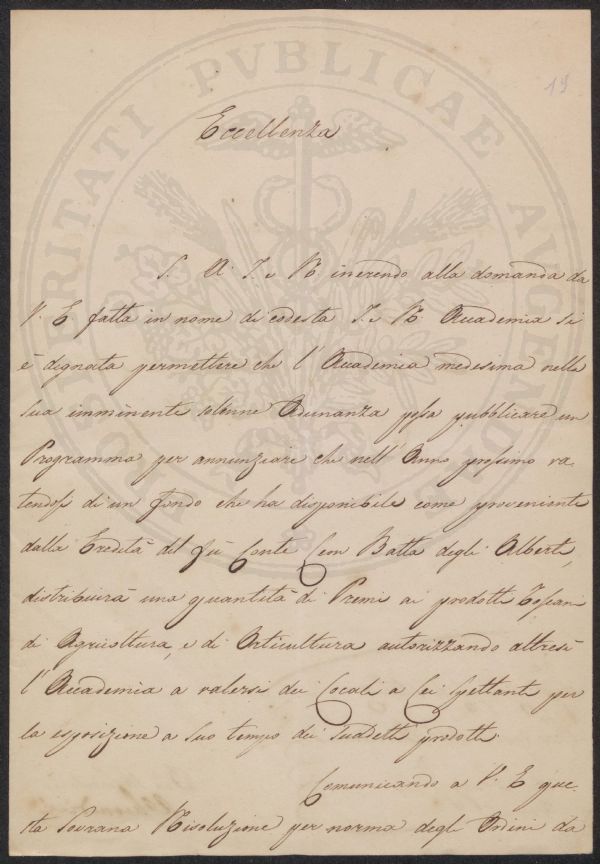 PROSPERITATI PVBLICAE AVGENDAE
19
Eccellenza
S. A. I. e R. inerendo alla domanda da
V. E. fatta in nome di codesta I. e R. Accademia si
è dignata permettere che l'Accademia medesima nella
sua imminente solenne Adunanza possa pubblicare un
Programma per annunziare che nell'Anno prossimo va-
lendosi di un fondo che ha disponibile come proveniente
dalla Eredità del fù Conte Leon Batta degli Alberti,
distribuirà una quantità di Premi ai prodotti Toscani
di Agricoltura, e di Orticultura autorizzando altresì
l'Accademia a valersi dei Locali a Lei spettanti per
la esposizione a suo tempo dei suddetti prodotti.
Comunicando a V. E. que-
sta Sovrana Risoluzione per norma degli Ordini da